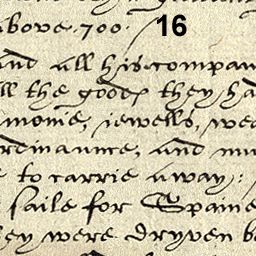 above .700. 16
and all his compan
ll the goods they had
monie, jewells, wea
rdinaunce, and mu
e to carrie away:
saile for Spaine
ley were dryven b